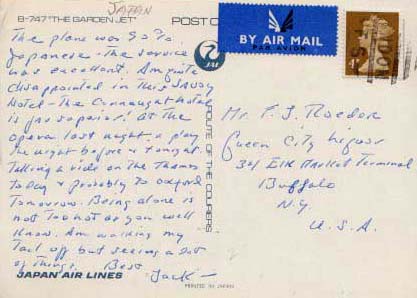 JAPAN
B-747 "THE GARDEN JET"
POST C
The plane was 90%
Japanese - The service
was excellent. Am quite
disappointed in this Savoy
Hotel - The Connaught Hotel
is far superior. At the
opera last night, a play
the night before & tonight.
Talking a ride on the Thames
Today & probably to Oxford
Tomorrow. Being alone is
not Too hot as you well
know. Am walking my
Tail off but seeing a lot
of Things. Best
Jack -
JAPAN AIR LINES
ROUTE OF THE COURIERS
PRINTED IN JAPAN
BY AIR MAIL
PAR AVION
Mr. F. J. Roeder
Queen City Liquor
Elk Market Terminal
Buffalo
N.Y.
U.S.A.